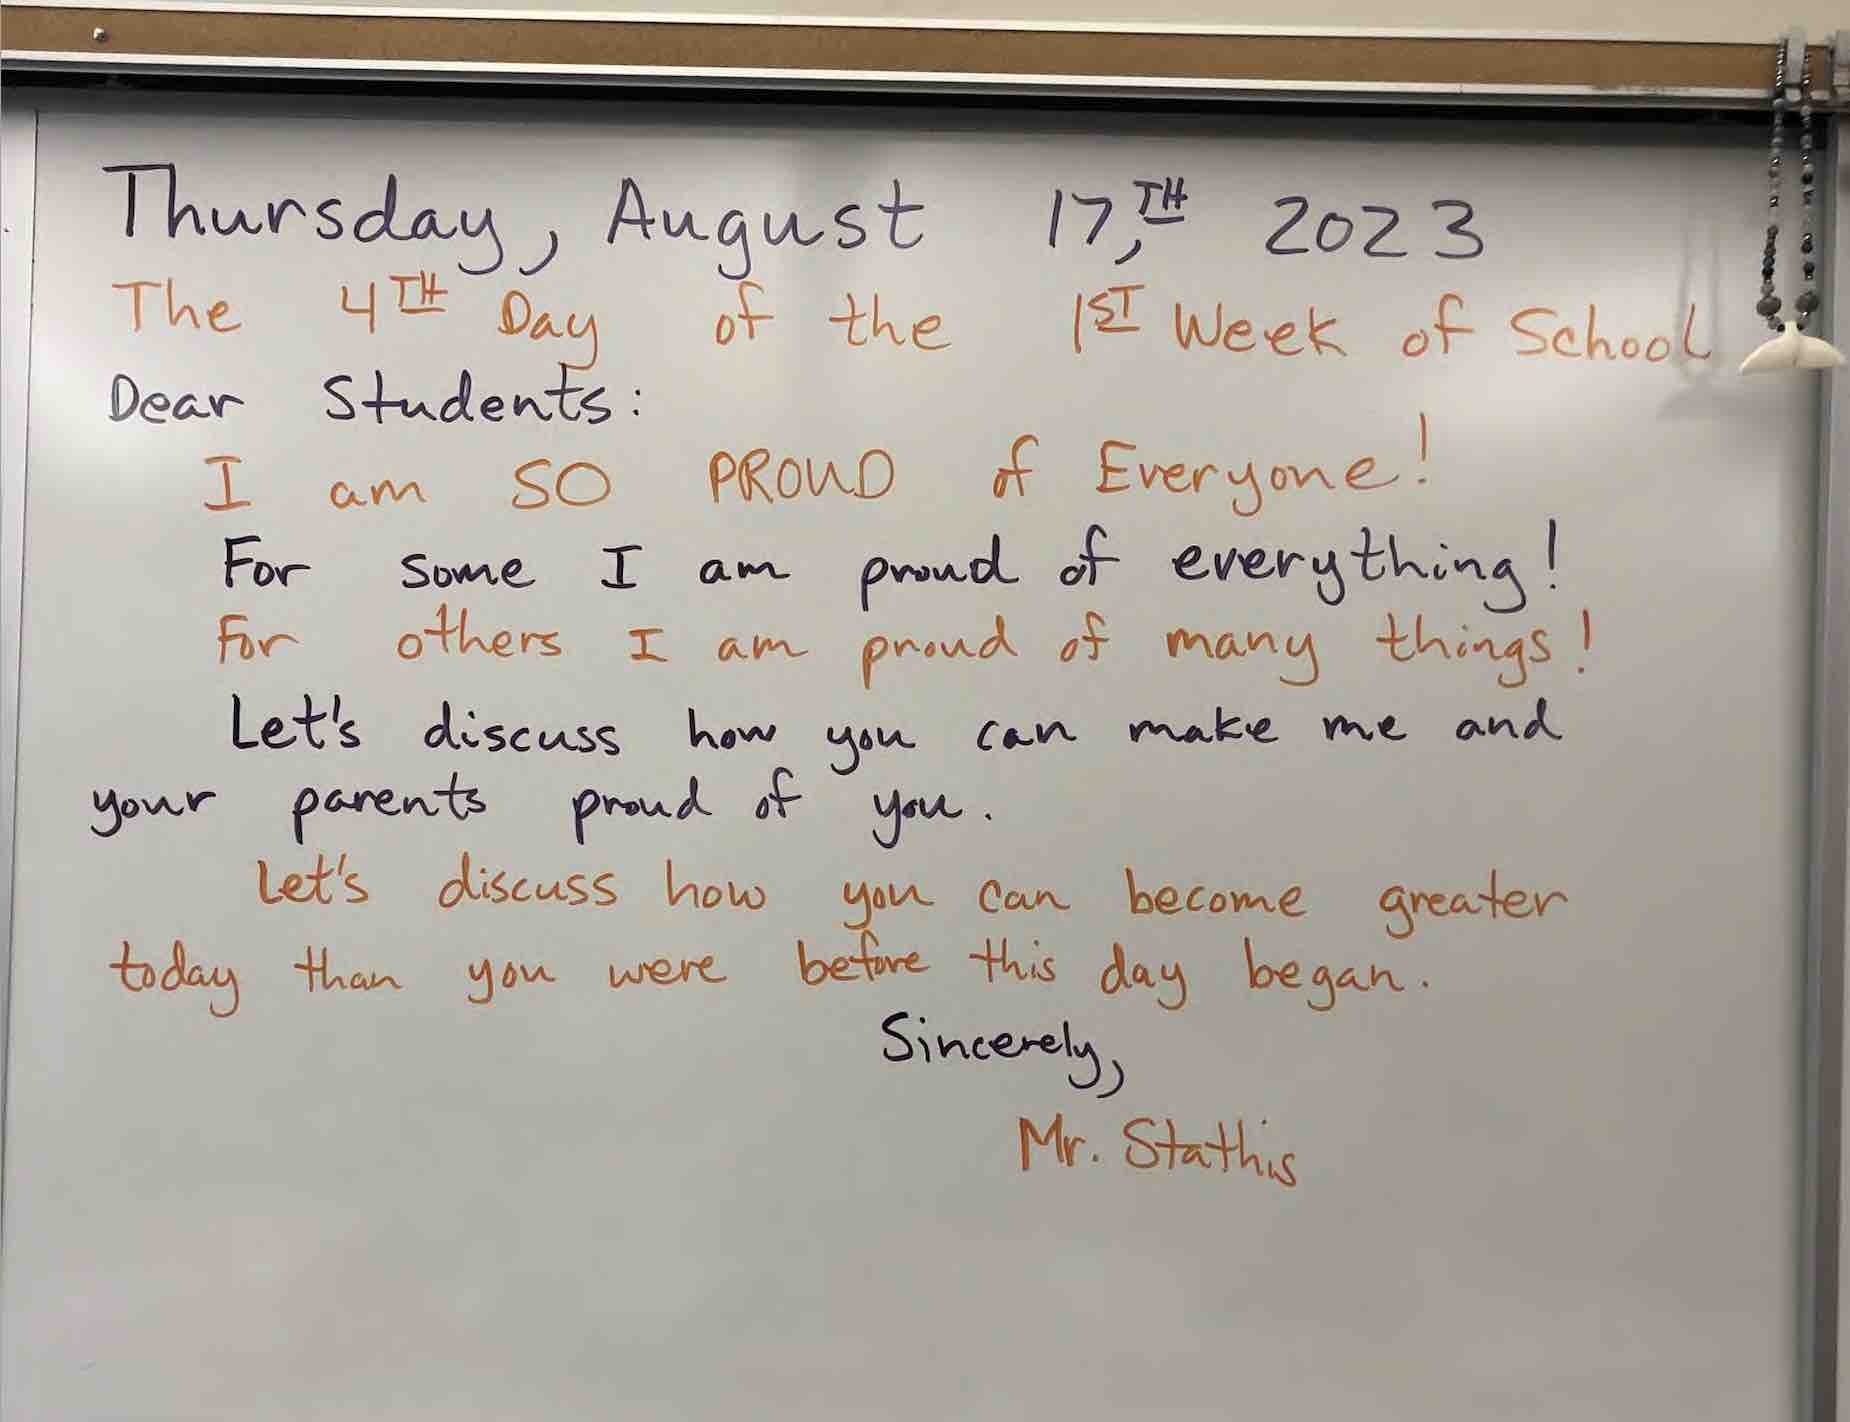 Thursday, August 17,TH 2023
The 4TH Day of the 1ST Week of School
Dear Students:
I am SO PROUD of Everyone!
For some I am proud of everything!
For others I am proud of many things!
Let's discuss how you can make me and
your parents proud of you.
Let's discuss how you can become greater
today than you were before this day began.
Sincerely,
Mr. Stathis